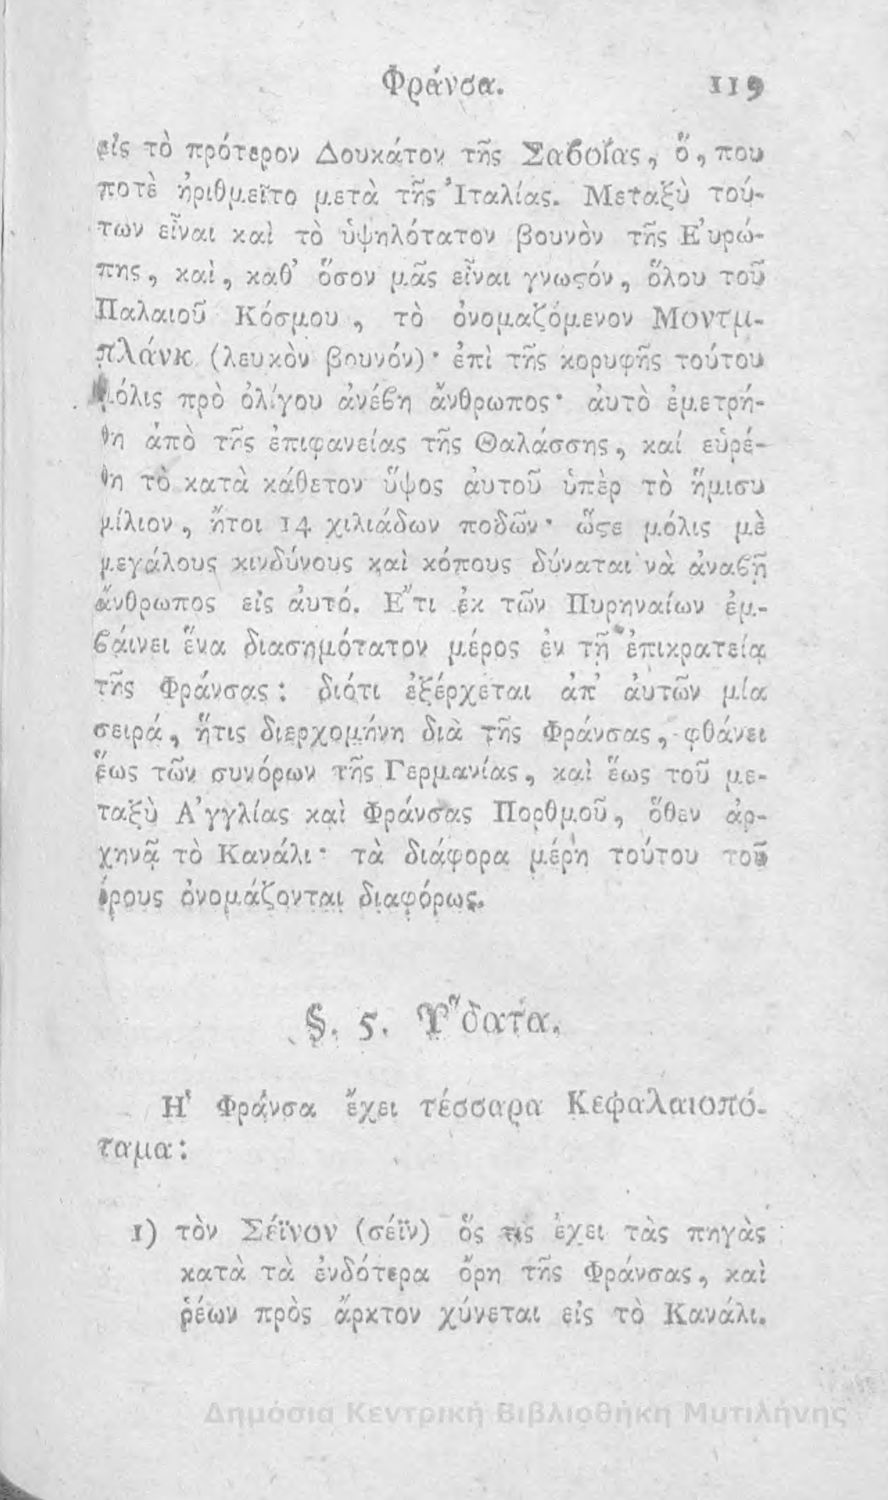 Φράνσα. 119
εἰς τὸ πρότερον Δουκάτον τῆς Σαβοΐας, ὅ, που
ποτὲ ἠριθμεῖτο μετὰ τῆς Ἰταλίας. Μεταξὺ τού-
των εἶναι καὶ τὸ ὑψηλότατον βουνὸν τῆς Εὐρώ-
πης, καὶ, καθ' ὅσον μᾶς εἶναι γνωϛόν, ὅλου τοῦ
Παλαιοῦ Κόσμου, τὸ ὀνομαζόμενον Μοντμ-
πλάνκ (λευκὸν βουνόν)· ἐπὶ τῆς κορυφῆς τούτου
μόλις πρὸ ὀλίγου ἀνέβη ἄνθρωπος· ἀυτὸ ἐμετρή-
θη ἀπὸ τῆς ἐπιφανείας τῆς Θαλάσσης, καί εὑρέ-
θη τὸ κατὰ κάθετον ὕψος ἀυτοῦ ὑπὲρ τὸ ἥμισυ
μίλιον, ἤτοι 14 χιλιάδων ποδῶν· ὥϛε μόλις μὲ
μεγάλους κινδύνους καὶ κόπους δύναται νὰ ἀναβῇ
ἄνθρωπος εἰς ἀυτό. Ἔτι ἐκ τῶν Πυρηναίων ἐμ-
βάινει ἕνα διασημότατον μέρος ἐν τῇ ἐπικρατείᾳ
τῆς Φράνσας: διότι ἐξέρχεται ἀπ' ἀυτῶν μία
σειρά, ἥτις διερχομήνη διὰ τῆς Φράνσας, φθάνει
ἕως τῶν συνόρων τῆς Γερμανίας, καὶ ἕως τοῦ με-
ταξὺ Ἀγγλίας καὶ Φράνσας Πορθμοῦ, ὅθεν ἀρ-
χηνᾷ τὸ Κανάλι· τὰ διάφορα μέρη τούτου τοῦ
ὄρους ὀνομάζονται διαφόρως.
§. 5. Ὕδατα.
Ἡ Φράνσα ἔχει τέσσαρα Κεφαλαιοπό-
ταμα:
1) τὸν Σέϊνον (σέϊν) ὅς τις ἔχει τὰς πηγὰς
κατὰ τὰ ἐνδότερα ὄρη τῆς Φράνσας, καὶ
ῥέων πρὸς ἄρκτον χύνεται εἰς τὸ Κανάλι.
Δημόσια Κεντρική Βιβλιοθήκη Μυτιλήνης